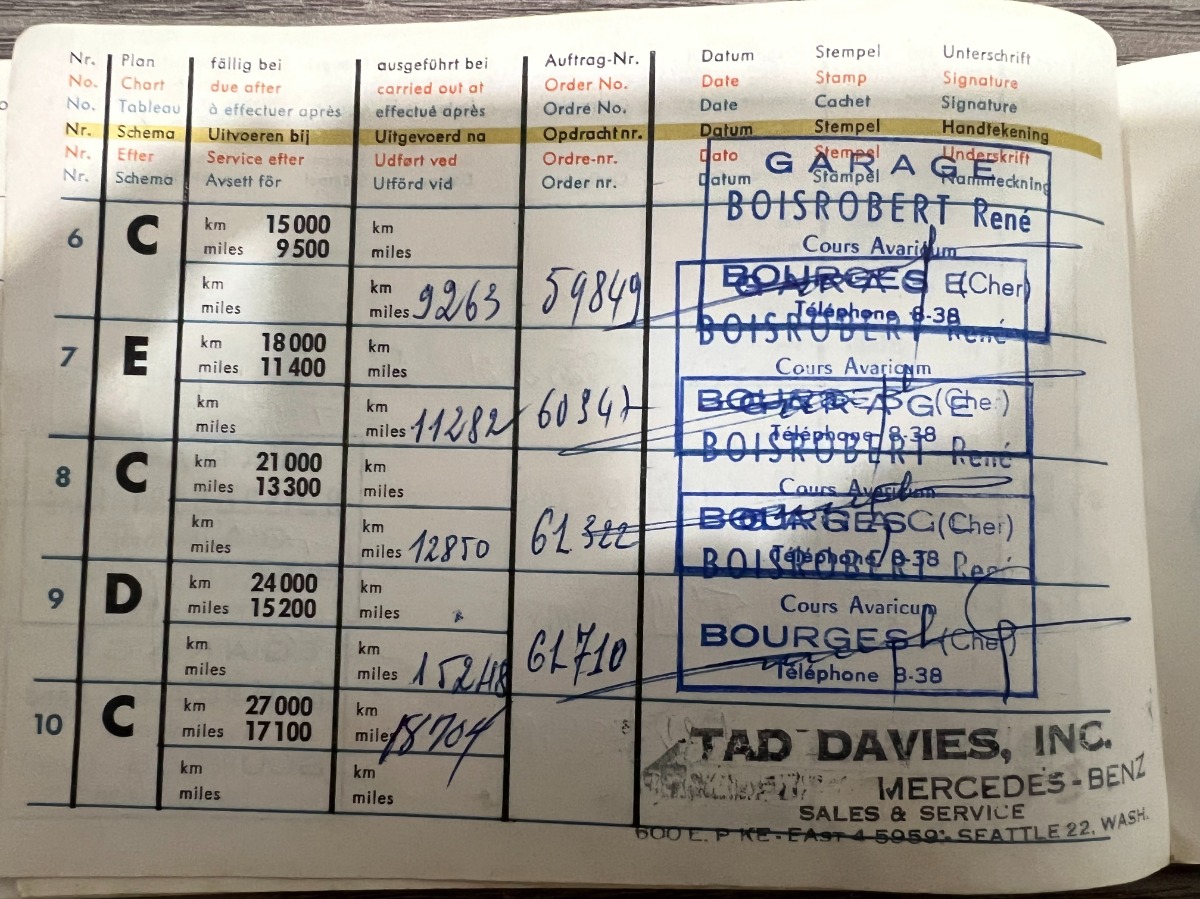 Nr. Plan fällig bei ausgeführt bei Auftrag-Nr. Datum Stempel Unterschrift
No. Chart due after carried out at Order No. Date Stamp Signature
No. Tableau à effectuer après effectué après Ordre No. Date Cachet Signature
Nr. Schema Uitvoeren bij Uitgevoerd na Opdracht nr. Datum Stempel Handtekening
Nr. Efter Service efter Udført ved Ordre-nr. Dato Stempel Underskrift
Nr. Schema Avsett för Utförd vid Order nr. Datum Stämpel Namnteckning
GARAGE
BOISROBERT René
Cours Avaricum
BOURGES (Cher)
Téléphone 8-38
6 C km 15 000 km
miles 9 500 miles
km km
miles miles 9263 59849
GARAGE
BOISROBERT René
Cours Avaricum
BOURGES (Cher)
Téléphone 8-38
7 E km 18 000 km
miles 11 400 miles
km km
miles miles 11282 60347
GARAGE
BOISROBERT René
Cours Avaricum
BOURGES (Cher)
Téléphone 8-38
8 C km 21 000 km
miles 13 300 miles
km km
miles miles 12850 61.322
GARAGE
BOISROBERT René
Cours Avaricum
BOURGES (Cher)
Téléphone 8-38
9 D km 24 000 km
miles 15 200 miles
km km
miles miles 15248 61710
10 C km 27 000 km
miles 17 100 miles 18704
km km
miles miles
TAD DAVIES, INC.
MERCEDES-BENZ
SALES & SERVICE
600 E. P KE - EAST 4-5959 SEATTLE 22, WASH.